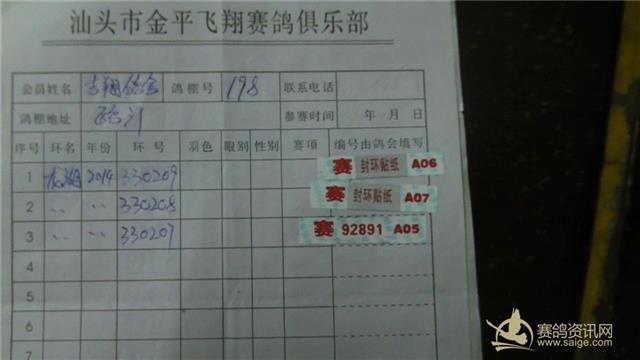 汕头市金平飞翔赛鸽俱乐部
会员姓名 鸽棚号 198 联系电话
鸽棚地址 参赛时间 年 月 日
序号 环名 年份 环号 羽色 眼别 性别 赛项 编号由鸽会填写
1 龙湖 2014 330209 赛 封环贴纸 A06
2 〃 〃 330208 赛 封环贴纸 A07
3 〃 〃 330207 赛 92891 A05
4
5
6
7
赛鸽资讯网
www.saige.com